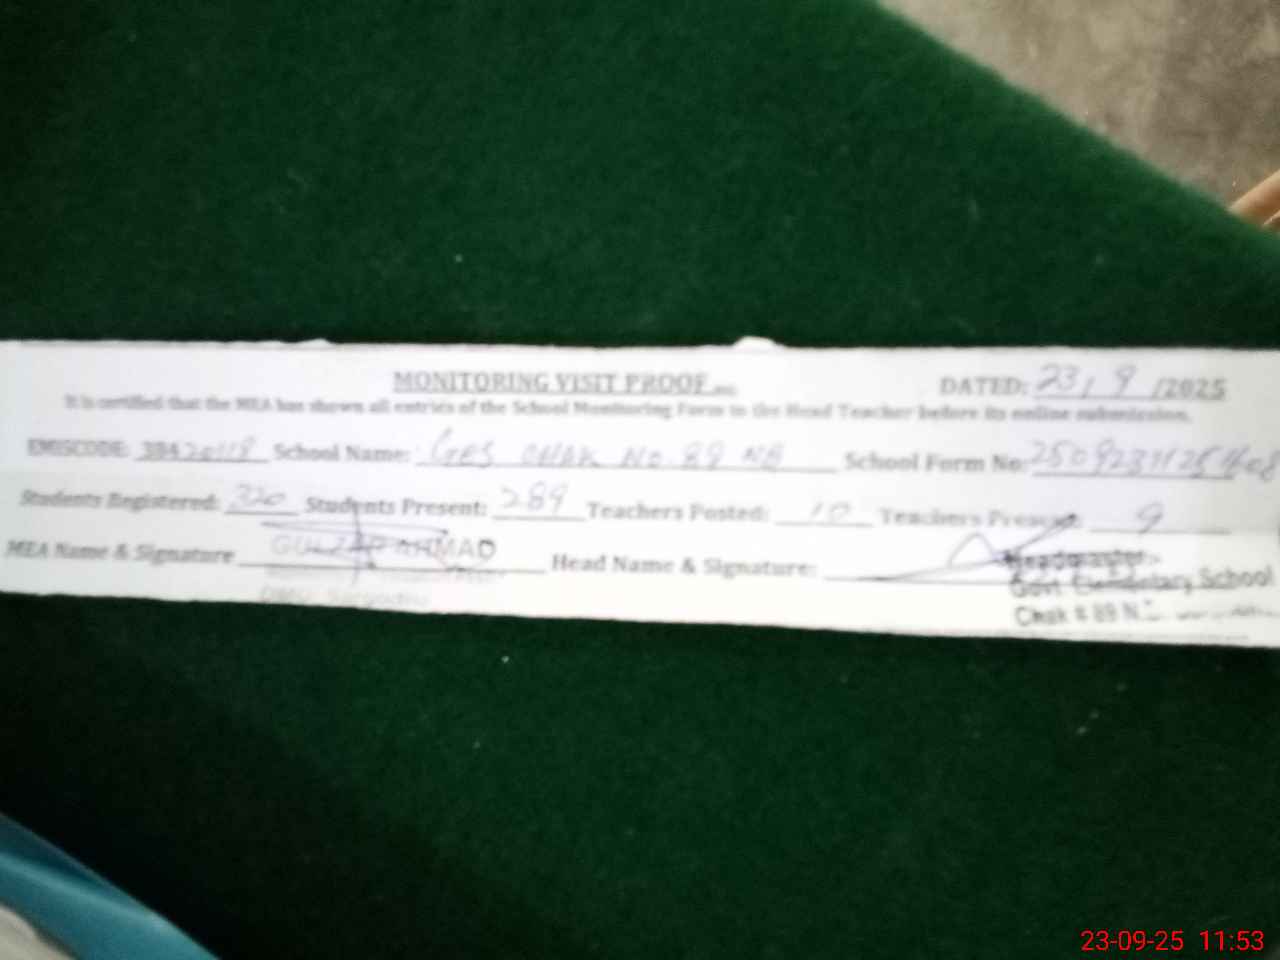 MONITORING VISIT PROOF DATED: 23, 9 /2025
It is certified that the MEA has shown all entries of the School Monitoring Form to the Head Teacher before its online submission.
EMISCODE: 38420118 School Name: GES CHAK NO. 89 NB School Form No:
Students Registered: 320 Students Present: 289 Teachers Posted: 10 Teachers Present: 9
MEA Name & Signature GULZAR AHMAD Head Name & Signature:
Headmaster
Govt. Elementary School
Chak # 89 N.
23-09-25 11:53